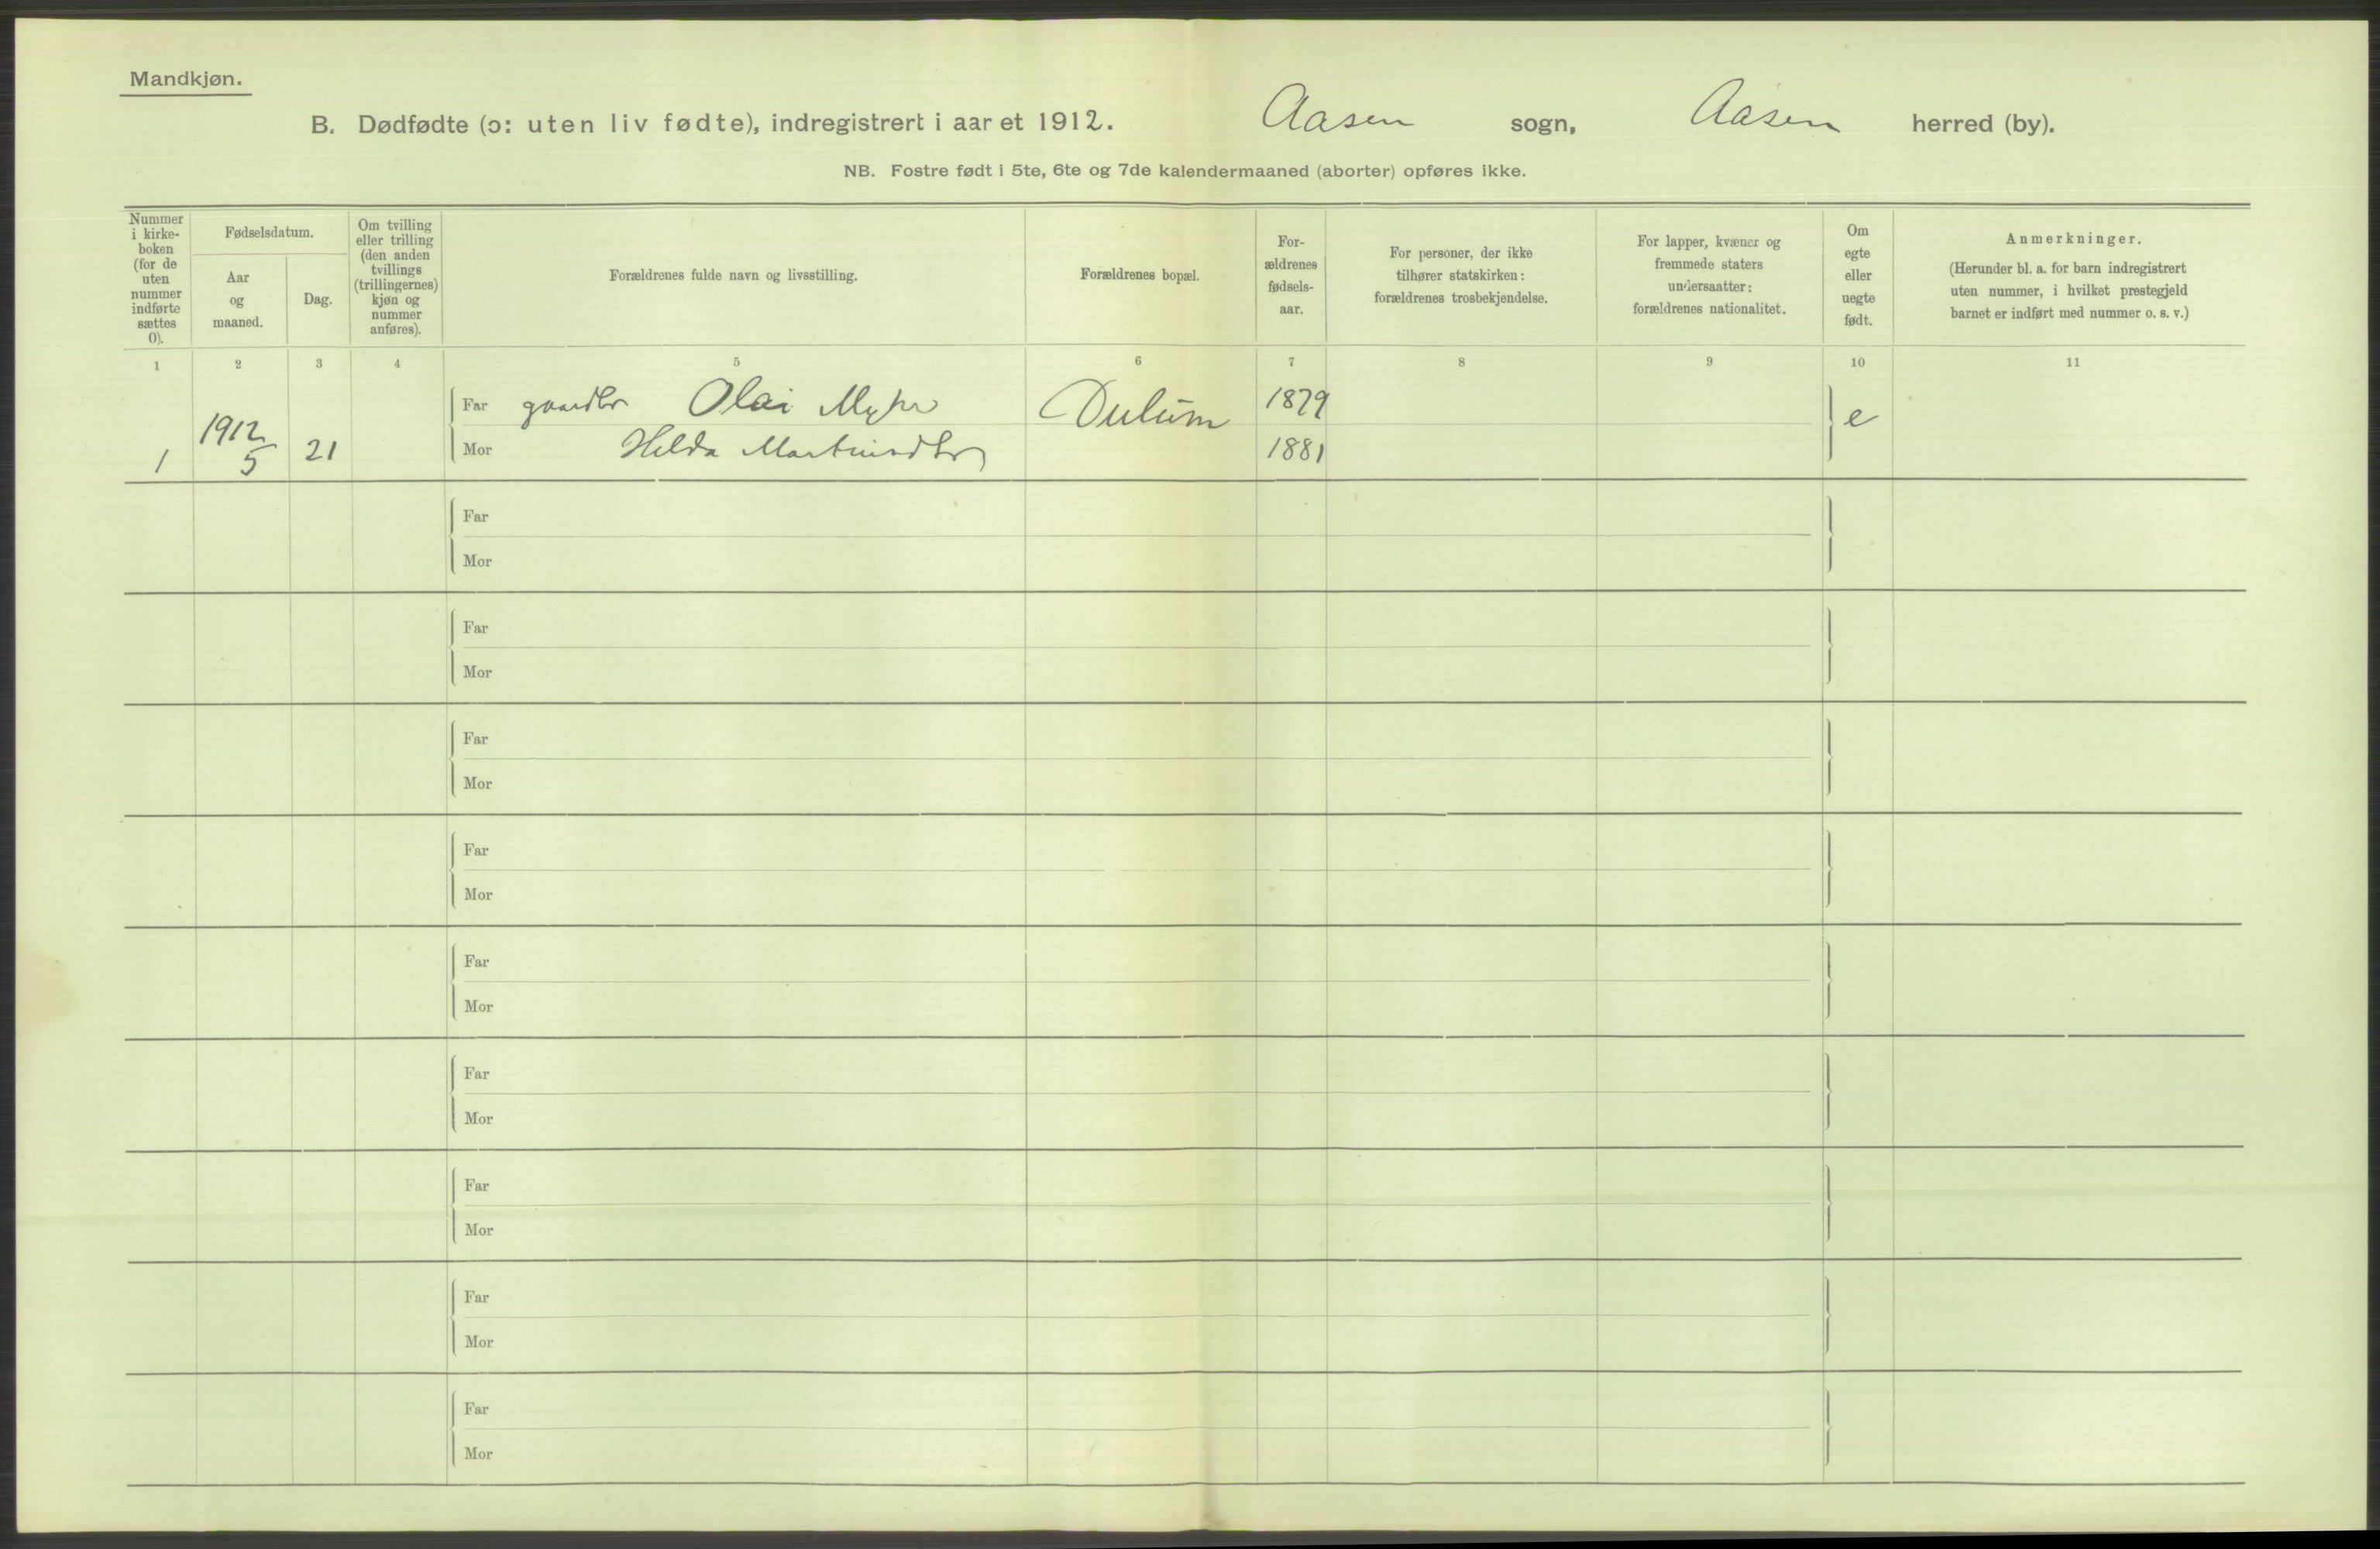 Mandkjøn.
B. Dødfødte (ɔ: uten liv fødte), indregistrert i aaret 1912. Aasen sogn, Aasen herred (by).
NB. Fostre født i 5te, 6te og 7de kalendermaaned (aborter) opføres ikke.
Nummer i kirke-boken (for de uten nummer indførte sættes 0).
Fødselsdatum.
Aar og maaned.
Dag.
Om tvilling eller trilling (den anden tvillings (trillingernes) kjøn og nummer anføres).
Forældrenes fulde navn og livsstilling.
Forældrenes bopæl.
For-ældrenes fødsels-aar.
For personer, der ikke tilhører statskirken: forældrenes trosbekjendelse.
For lapper, kvæner og fremmede staters undersaatter: forældrenes nationalitet.
Om egte eller uegte født.
Anmerkninger.
(Herunder bl. a. for barn indregistrert uten nummer, i hvilket prestegjeld barnet er indført med nummer o. s. v.)
1 2 3 4 5 6 7 8 9 10 11
Far gaardbr Olai Myhr Dulum 1879
1 1912 5 21 Mor Hilda 1881 e
Far
Mor
Far
Mor
Far
Mor
Far
Mor
Far
Mor
Far
Mor
Far
Mor
Far
Mor
Far
Mor